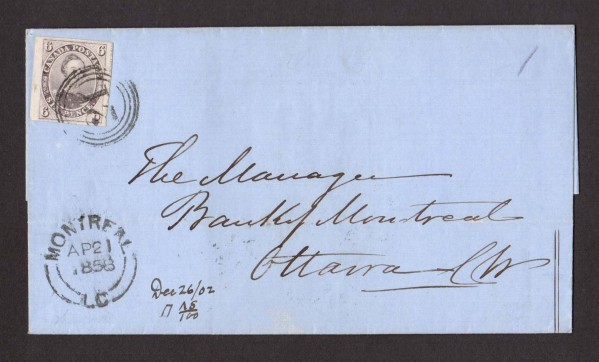 6 CANADA POSTAGE 6
6 SIX PENCE 6
21
The Manager
Bank of Montreal
Ottawa CW
MONTREAL
AP 21
1858
L.C
Dec 26/02
17 75/100